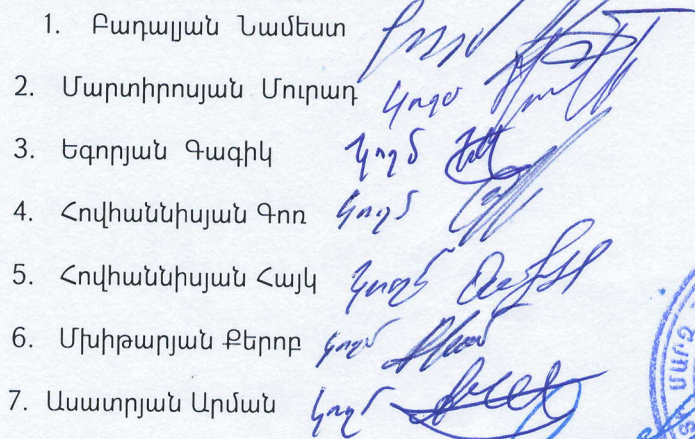 1. Բադալյան Նամեստ կողմ
2. Մարտիրոսյան Մուրադ կողմ
3. Եգորյան Գագիկ կողմ
4. Հովհաննիսյան Գոռ կողմ
5. Հովհաննիսյան Հայկ կողմ
6. Մխիթարյան Քերոբ կողմ
7. Ասատրյան Արման կողմ
ՄԱՐԶ